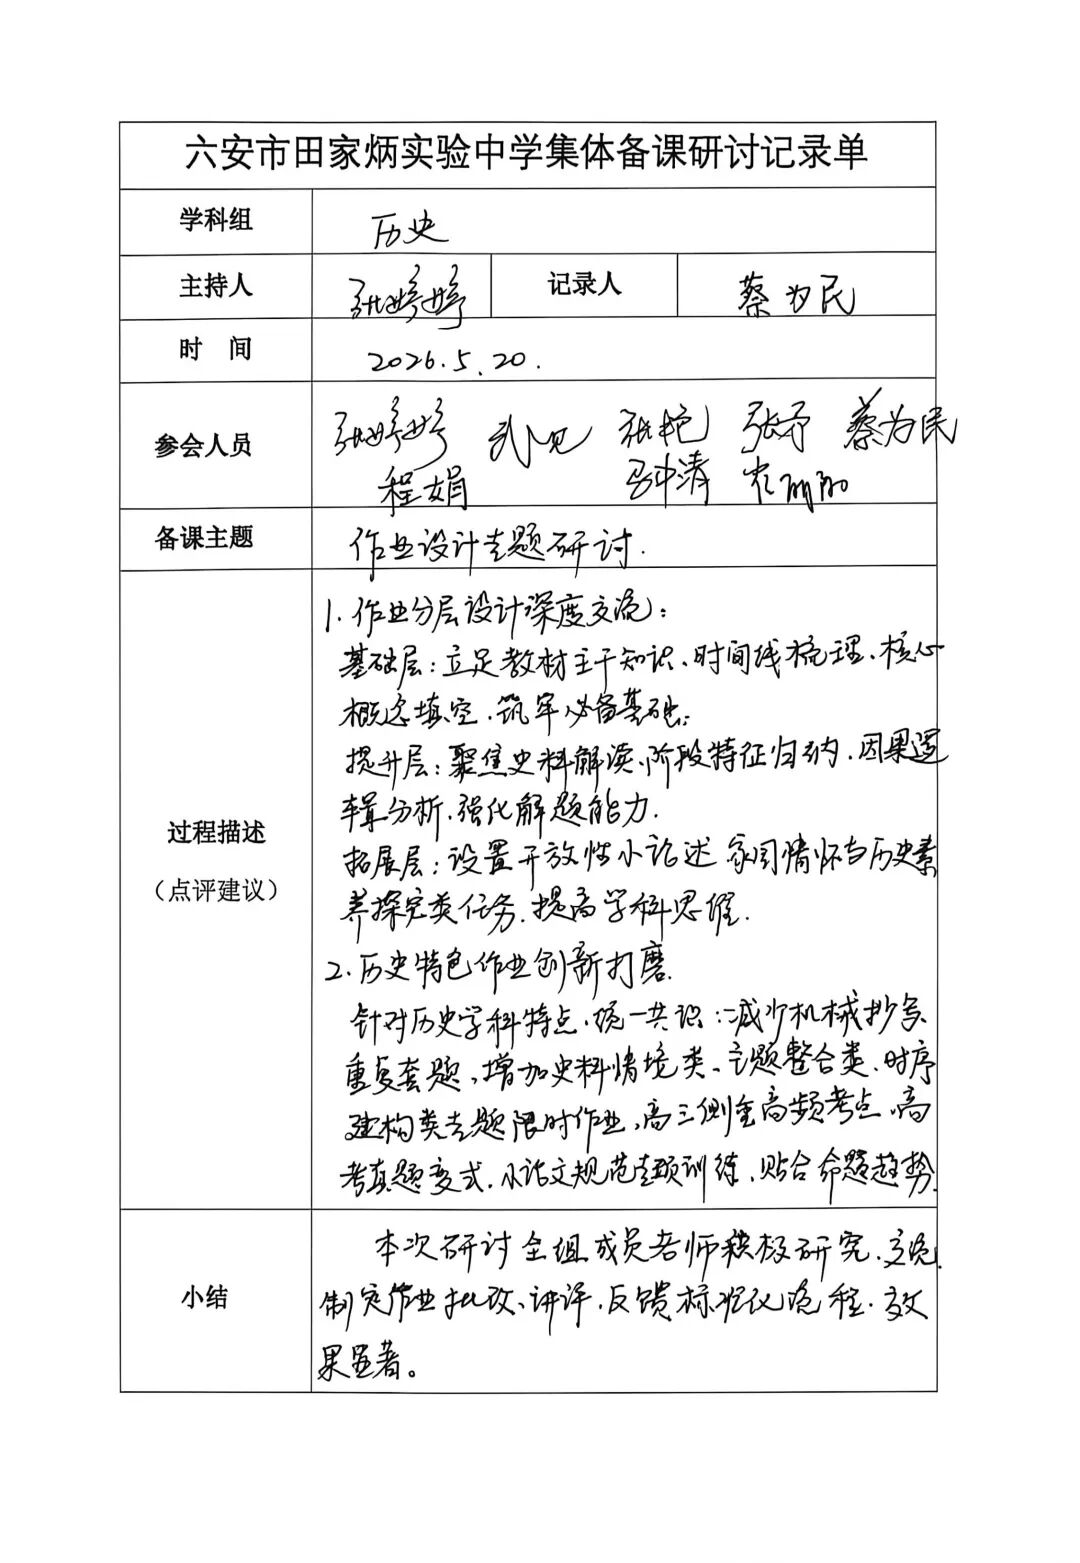 六安市田家炳实验中学集体备课研讨记录单
学科组 历史
主持人 张婷婷 记录人 蔡为民
时 间 2026.5.20.
参会人员 张婷婷 张艳 张予 蔡为民
程娟
备课主题 作业设计专题研讨.
过程描述
（点评建议）
1. 作业分层设计深度交流：
基础层：立足教材主干知识、时间线梳理、核心
概念填空、筑牢必备基础；
提升层：聚焦史料解读、阶段特征归纳、因果逻
辑分析、强化解题能力.
拓展层：设置开放性小论述 家国情怀与历史素
养探究类任务、提高学科思维.
2. 历史特色作业创新打磨.
针对历史学科特点，统一共识：减少机械抄写、
重复套题，增加史料情境类、主题整合类、时序
建构类专题限时作业，高三侧重高频考点、高
考真题变式、小论文规范专项训练、贴合命题趋势.
小结
本次研讨全组成员老师积极研究、交流.
制定作业批改、讲评、反馈标准化流程. 效
果显著。